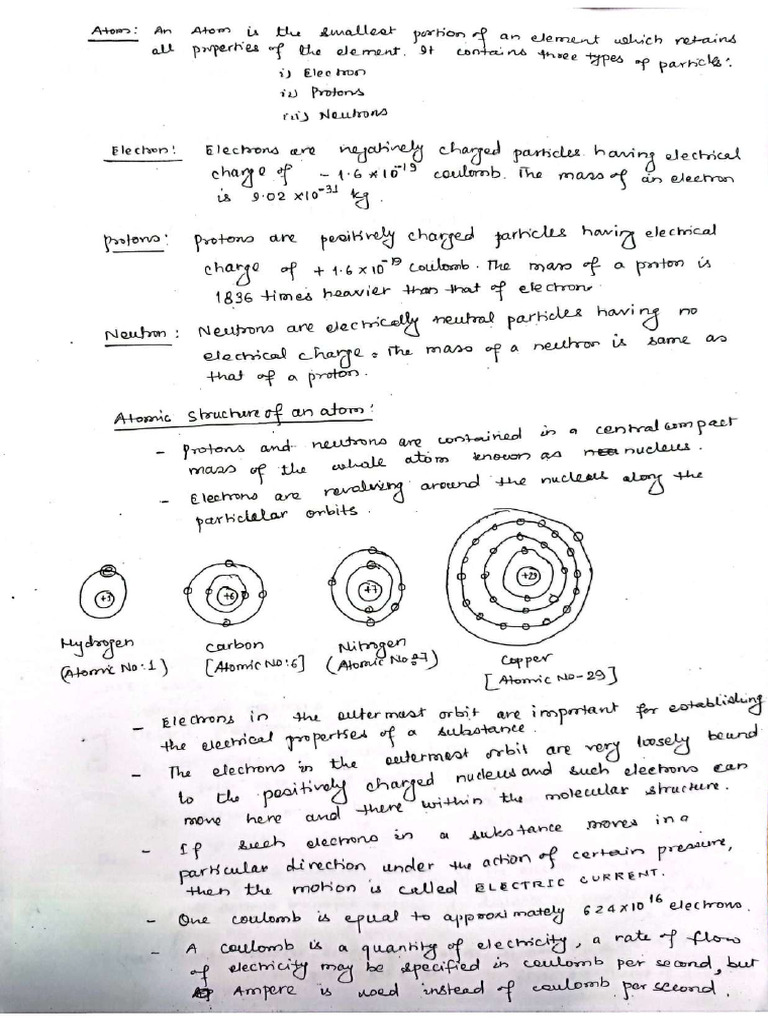 Atom: An Atom is the smallest portion of an element which retains
all properties of the element. It contains three types of particles:
i) Electron
ii) Protons
iii) Neutrons
Electron: Electrons are negatively charged particles having electrical
charge of - 1.6 x 10⁻¹⁹ coulomb. The mass of an electron
is 9.02 x 10⁻³¹ kg.
Protons: Protons are positively charged particles having electrical
charge of + 1.6 x 10⁻¹⁹ coulomb. The mass of a proton is
1836 times heavier than that of electron.
Neutron: Neutrons are electrically neutral particles having no
electrical charge. The mass of a neutron is same as
that of a proton.
Atomic structure of an atom:
- Protons and neutrons are contained in a central compact
mass of the whole atom known as nucleus.
- Electrons are revolving around the nucleus along the
particular orbits.
+6 +7 +29
Hydrogen Carbon Nitrogen Copper
(Atomic No:1) [Atomic NO:6] (Atomic No:7) [Atomic NO-29]
- Electrons in the outermost orbit are important for establishing
the electrical properties of a substance.
- The electrons in the outermost orbit are very loosely bound
to the positively charged nucleus and such electrons can
move here and there within the molecular structure.
- If such electrons in a substance moves in a
particular direction under the action of certain pressure,
then the motion is called ELECTRIC CURRENT.
- One coulomb is equal to approximately 624x10¹⁶ electrons.
- A coulomb is a quantity of electricity, a rate of flow
of electricity may be specified in coulomb per second, but
Ampere is used instead of coulomb per second.